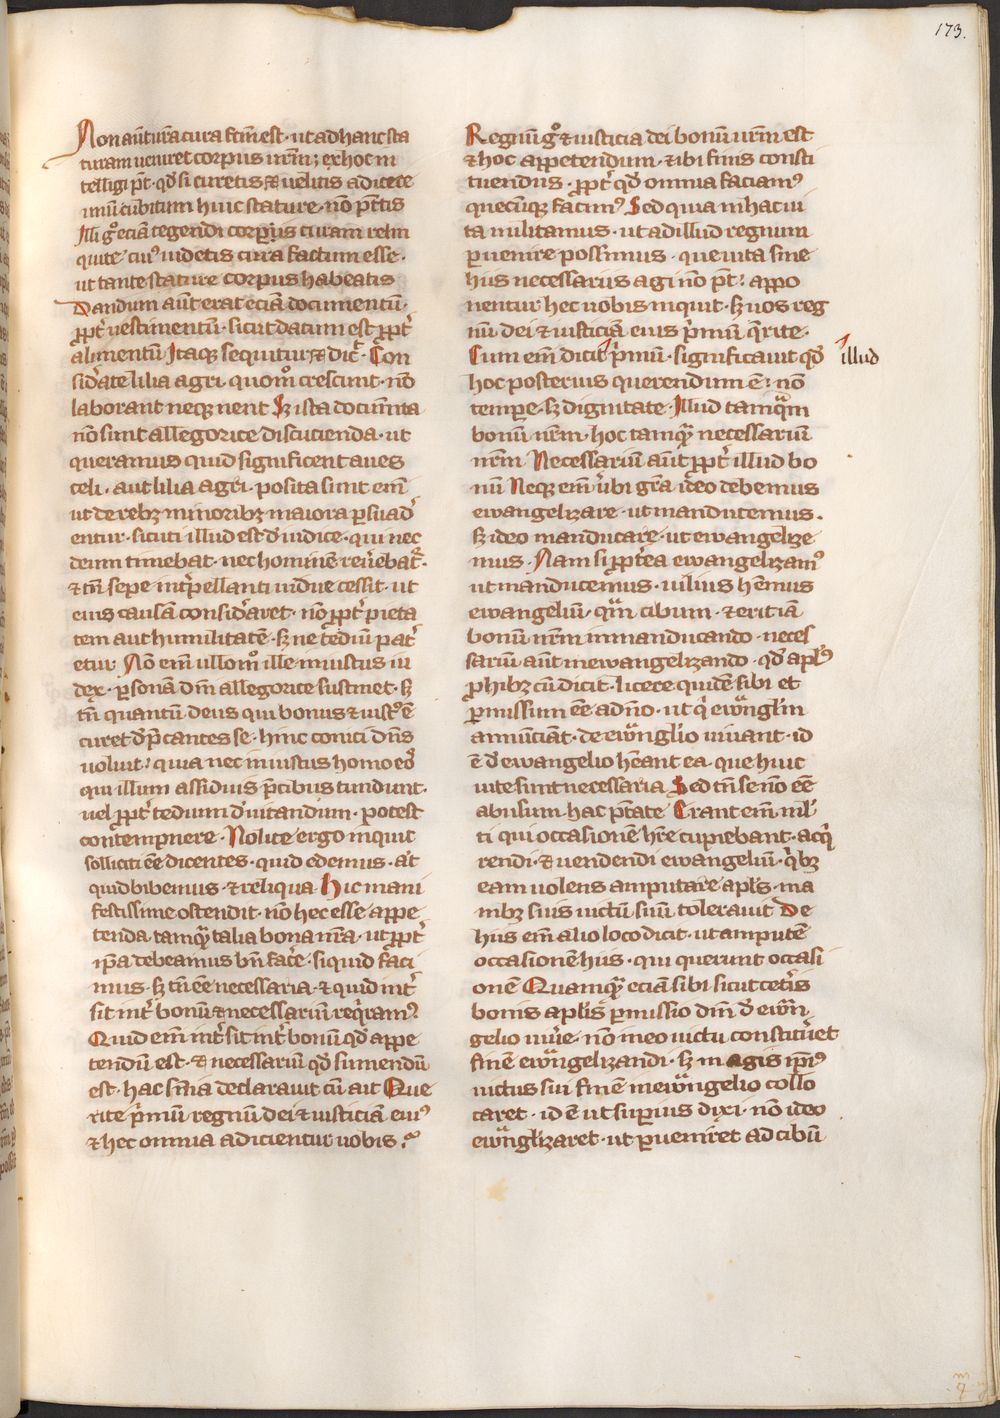 173.
Non aūt ura cura fc̄m est · ut ad hanc sta
turam ueniret corpus urm̄; ex hoc in
telligi pt̄ · qd̓ si curetis ⁊ uelitis adicere
unū cubitum huic stature · nō pt̄tis
Illi gͦ eciā tegendi corpus curam relin
quite · cuiꝰ uidetis cura factum esse ·
ut tante stature corpus habeatis
Dandum aūt erat eciā documentū ·
ꝓpt̓ uestimentū · sicut datum est ꝓpt̓
alimentū Itaqꝫ sequitur ⁊ dic̄t · Con
sid̓ate lilia agri · quomͦ crescunt · nō
laborant neqꝫ nent Sꝫ ista docum̄ta
nō sunt allegorice discutienda · ut
queramus quid significent aues
celi · aut lilia agri · posita sunt em̄
ut de rebꝫ minoribꝫ maiora ꝑsuad̓
entur · sicuti illud est d̓ iudice · qui nec
deum timebat · nec hominē reu̓ebat᷑ ·
⁊ tn̄ sepe int̓pellanti uidue cessit · ut
eius causā consid̓aret · nō ꝓpt̓ pieta
tem aut humilitatē · sꝫ ne tediū pat̓
etur Nō em̄ ullomͦ ille iniustus iu
dex · ꝑsonā dm̄ allegorice sustinet · sꝫ
tn̄ quantū deus qui bonus ⁊ iustꝰ ē
curet dep̄cantes se · hinc conici dn̄s
uoluit · quia nec iniustus homo eos̓
qui illum assiduis p̄cibus tundunt ·
uel ꝓpt̓ tedium d̓uitandum · potest
contempnere · Nolite ergo inquit
solliciti eē dicentes · quid edemus · at̄
quid bibemus · ⁊ reliqua Hic mani
festissime ostendit · nō hec esse appe
tenda tamqᷓ talia bona nr̄a · ut ꝓpt̓
ip̄a debeamus bn̄ fac̓e · siquid faci
mus · sꝫ tn̄ eē necessaria · ⁊ quid int̓
sit int̓ bonū ⁊ necessariū reqͥramꝰ
Quid em̄ int̓sit int̓ bonū qd̓ appe
tendū est · ⁊ necessariū qd̓ sumendū
est · hac sn̄ia declarauit cū ait Que
rite pͥmū regnū dei ⁊ iusticiā eiuꝰ
⁊ hec omnia adicientur uobis ·
Regnū gͦ ⁊ iusticia dei bonū nr̄m est
⁊ hoc appetendum · ⁊ ibi finis consti
tuendus · ꝓpt̓ qd̓ omnia faciamꝰ
quecūqꝫ facimꝰ Sed quia in hac ui
ta militamus · ut ad illud regnum
ꝑuenire possimus · que uita sine
hiis necessariis agi nō pt̄ · appo
nentur hec uobis inquit · sꝫ uos reg
nū dei ⁊ iusticiā eius pͥmū qͥrite ·
Cum em̄ dicit pͥmū · significauit qd̓
illud
hoc posterius querendum ē · nō
tempe · sꝫ dignitate · Illud tamqᷓm
bonū nr̄m · hoc tamqᷓ necessariū
nr̄m Necessariū aūt ꝓpt̓ illud bo
nū Neqꝫ em̄ u̓bi gr̄a ideo debemus
ewangelizare · ut manducemus ·
sꝫ ideo manducare · ut ewangelize
mus · Nam si ꝓpt̓ea ewangelizamꝰ
ut manducemus · uilius hēmus
ewangeliū · qᷓm cibum · ⁊ erit iā
bonū nr̄m in manducando · neces
sariū aūt in ewangelizando · qd̓ apl̄s
ꝓhibꝫ cū dicit · licere quidē sibi et
ꝑmissum eē a dn̄o · ut qͥ ewᷓngl̓m
annūciāt · de ewᷓngl̓io uiuant · id
ē d̓ ewangelio hēant ea · que huic
uite sunt necessaria Sed tn̄ se nō eē
abusum hac ptāte Erant em̄ ml̓
ti qui occasionē hr̄e cupiebant · acqͥ
rendi · ⁊ uendendi ewangeliū · qͥbꝫ
eam uolens amputare apl̄s · ma
nibꝫ suis uictū suū tolerauit De
hiis em̄ alio loco dicit · ut amputē
occasionē hiis · qui querunt occasi
onē Quamqᷓ eciā sibi sicut cet̓is
bonis apl̄is ꝑmissio dm̄ d̓ ewᷓn
gelio uiu̓e · nō in eo uictu constitu̓et
finē ewᷓngelizandi · sꝫ magis ip̄iꝰ
uictus sui finē in ewᷓngelio collo
caret · id ē ut suꝑius dixi · nō ideo
ewᷓnglizaret · ut ꝑueniret ad cibū